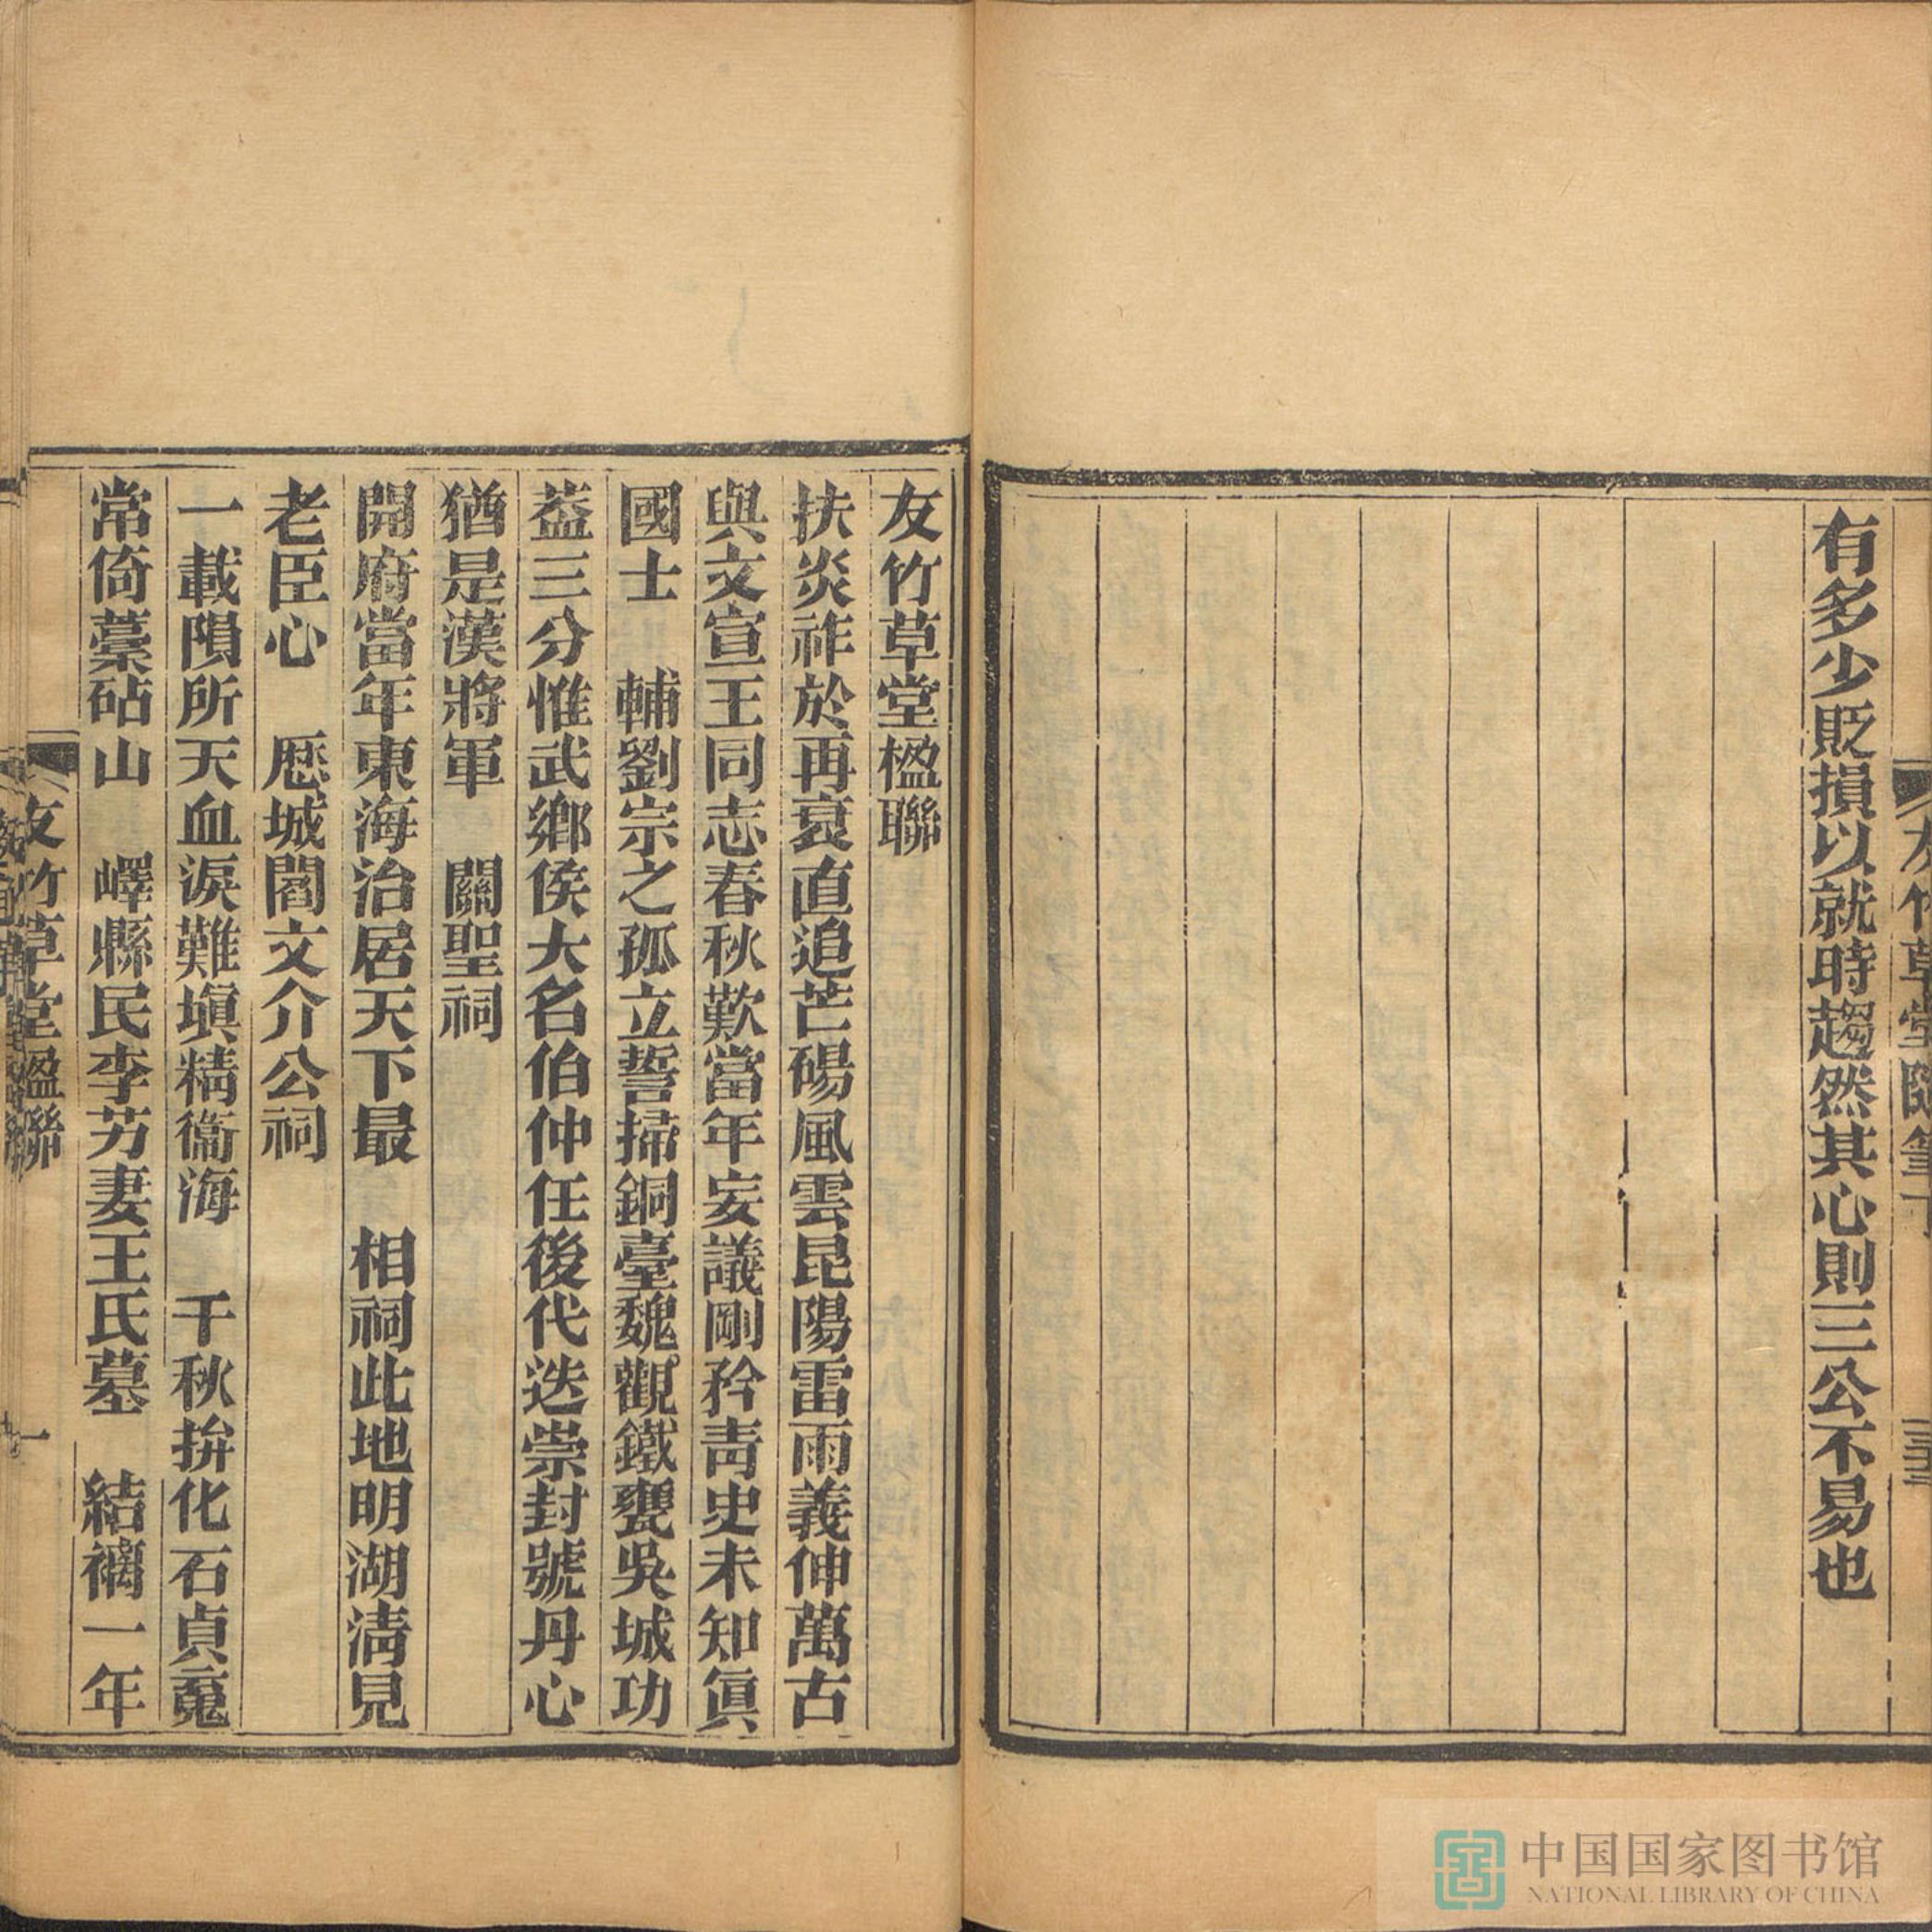 有多少貶損以就時趨然其心則三公不易也
友竹草堂楹聯
扶炎祚於再衰直追芒碭風雲昆陽雷雨義伸萬古
與文宣王同志春秋歎當年妄議剛矜靑史未知眞
國士　輔劉宗之孤立誓掃銅臺魏觀鐵甕吳城功
蓋三分惟武鄉侯大名伯仲任後代迭崇封號丹心
猶是漢將軍　關聖祠
開府當年東海治居天下最　相祠此地明湖淸見
老臣心　歷城閻文介公祠
一載隕所天血淚難塡精衞海　千秋拚化石貞魂
常倚藁砧山　嶧縣民李芳妻王氏墓　結褵一年
友竹草堂楹聯
一
中国国家图书馆
NATIONAL LIBRARY OF CHINA